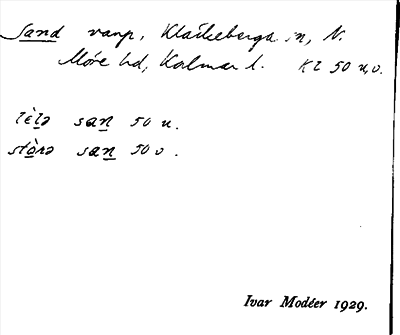 Sand vanp, Kläckeberga sn, N.
Möre hd, Kalmar l. Kl 50 u, o.
lèlə san 50 u.
stòrə san 50 o.
Ivar Modéer 1929.